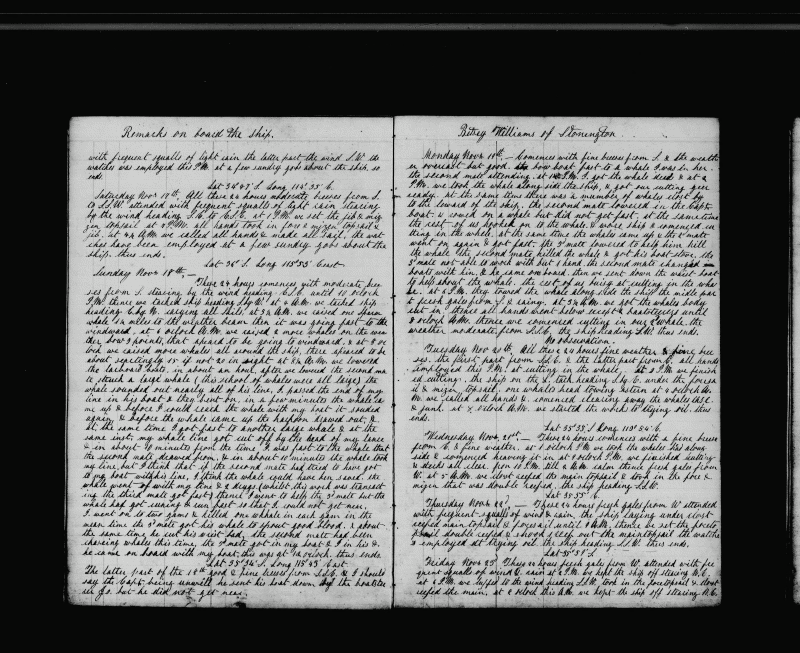 Remarks on board the ship.
with frequent squalls of light rain the latter part the wind S.W. the
watches was employed this P.M. at a few sundry jobs about the ship, so
ends.
Lat 34°47' S. Long 112°35' E.
Saturday Nov. 17th. All these 24 hours moderate breeses from S.
to S.S.W. attended with frequent squalls of light rain stearing
by the wind heading S.E. to E.S.E. at 1 P.M. we set the jib & miz
zen topsail at P.M. all hands took in fore & mizen topsail &
jib. at 4 A.M. we called all hands & made all sail, the wat
ches have been employed at a few sundry jobs about the
ship. thus ends.
Lat 36° S. Long 115°53' East
Sunday Nov. 18th.—
These 24 hours comences with moderate bree
ses from S. stearing by the wind heading till 11 oclock
P.M. thence we tacked ship heading S. by W. at 4 A.M. we tacked ship
heading E. by N. carying all sail, at A.M. we raised one sparm
whale 4 miles to the weather beam then it was going fast to the
windward. at 6 oclock A.M. we raised 2 more whales on the wea
ther bow 3 points, that apeared to be going to windward. & at 8 oc
lock we raised more whales all around the ship, there apeared to be
about seperately 15 or 20 in sight at A.M. we lowered
the larboard boats, in about an hour, after we lowered the second ma
te struck a large whale (this school of whales were all large) the
whale sounded out nearly all of his line, I passed the end of my
line in his boat & they bent on, in a few minutes the whale ca
me up & before I could reach the whale with my boat it souded
again, & before the whale came up the harpoon drawed out, &
at the same time I got fast to another large whale & at the
same inst, my whale line got cut off by the head of my lance
& in about 10 minutes from the time I was fast to the whale that
the second mate drawed from, & in about 10 minutes the whale took
my line, but I think that if the second mate had tried to have got
to my boat with his line, I think the whale could have ben saved. the
whale went off with my line & 2 drugs (whilst this work was transact
ing the third mate got fast) thence I went to help the 3d mate but the
whale had got runing & ben part so that I could not get near.
I went on to two gams & killed one whale in each gam in the
mean time the 3d mate got his whale to spout good blood. & about
the same time he cut his whale bad, the second mate had been
chaseing whales this time, the 3d mate got in my boat & I in his &
he came on board with my boat, this was at 12 oclock. thus ends
Lat 35°34' S. Long 115°43' East
The latter part of the 18th good & fine breeses from S.S.E. & I should
say the Capt. being unwell he sent his boat down by the boatstee
rer so. but he did not get near.
Betsey Williams of Stonington
Monday Nov. 19th.— Comences with fine breeses from S. & the weathe
r overcast but good the bow boat fast to a whale I was in her.
the second mate attending. at P.M. I got the whale dead & at 2
P.M. we took the whale along side the ship, & got our cutting gear
ready. At the same time there was a number of whales close by
to the leward of the ship, the second mate lowered in the Capt.
boat. & rowed on a whale but did not get fast, at the same time
the rest of us hooked on to the whale & wore ship & comenced cu
tting in the whale, at the same time the whale came up & the 2d mate
went on again & got fast. the 3d mate lowered to help him kill
the whale the second mate killed the whale & got his boat stove. the
3d mate not able to work with but 1 hand. the second mate changed
boats with him. & he came on board. then we sent down the waist boat
to help about the whale. the rest of us being at cutting in the wha
le. at 6 P.M. they towed the whale along side the ship, the middle part
a fresh gale from S. & rainy. at 3½ A.M. we got the whale's body
cut in. thence all hands went below except & boatsteerers until
6 oclock A.M. thence we comenced cutting in our 2d whale. the
weather moderate from S.S.E. the ship heading S.W. thus ends.
No observation.
Tuesday Nov. 20th. All these 24 hours fine weather & fine bree
ses. the first part from S.E. & the latter part from E. all hands
employed this P.M. at cutting in the whale. at 2 P.M. we finish
ed cutting. the ship on the S. tack heading S. by E. under the foresa
il & mizen topsail. one whales head towing astern at 4 oclock A.
M. we called all hands & comenced clearing away the whales case.
& junk. at 7 oclock A.M. we started the works to trying oil. thus
ends.
Lat 35°35' S. Long 113°54' E.
Wednesday Nov. 21st.— These 24 hours comences with a fine breese
from E. & fine weather, at 1 oclock P.M. we took the whales head along
side & comenced heaving it in at 6 oclock P.M. we finished cutting
& decks all clear. from 10 P.M. till 4 A.M. calm thence fresh gales from
W. at 5 A.M. we close reefed the main topsail & took in the fore &
mizen that was double reefed. the ship heading S.S.W.
Lat 35°55' E.
Thursday Nov. 22d.— These 24 hours fresh gales from W. attended
with frequent squalls of wind & rain, the ship laying under close
reefed main topsail & foresail until 8 A.M. thence we set the foreto
psail double reefed & shook 1 reef out the maintopsail the watche
s employed at trying oil. the ship heading S.S.W. thus ends.
Lat 35°38' S.
Friday Nov. 23d These 24 hours fresh gales from W. attended with fre
quent squalls of wind & rain at 2 P.M. we kept the ship off stearing N.E.
at 6 P.M. we luffed to the wind heading S.S.W. took in the foretopsail & close
reefed the main, at 4 oclock this A.M. we kept the ship off stearing N.E.